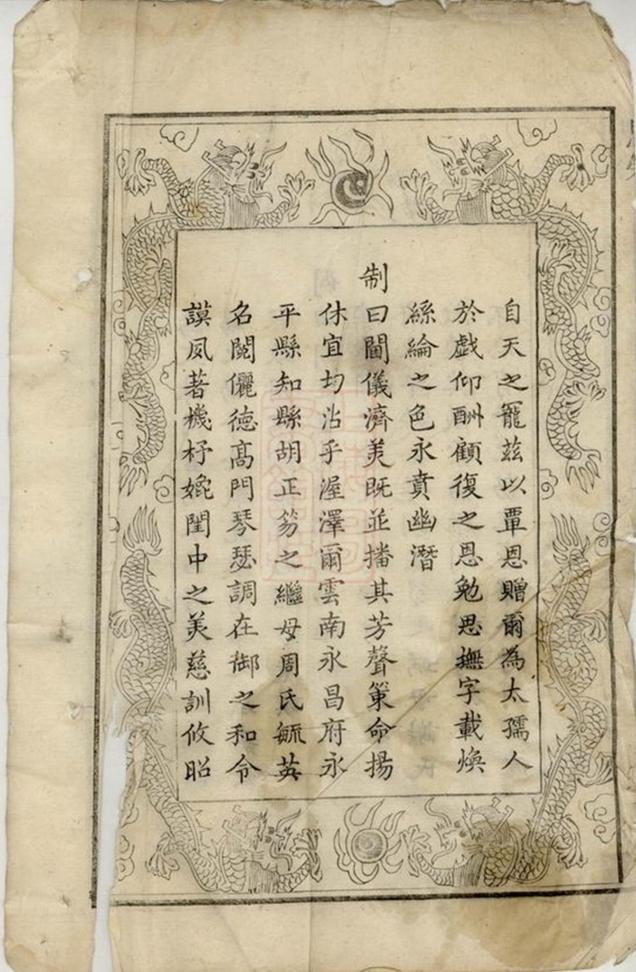 自天之寵茲以覃恩贈爾為太孺人
於戲仰酬顧復之恩勉思撫字載煥
絲綸之色永賁幽潛
制曰閫儀濟美既並播其芳聲策命揚
休宜均沾乎渥澤爾雲南永昌府永
平縣知縣胡正笏之繼母周氏毓英
名閥儷德高門琴瑟調在御之和令
謨夙著機杼嫓閨中之美慈訓攸昭